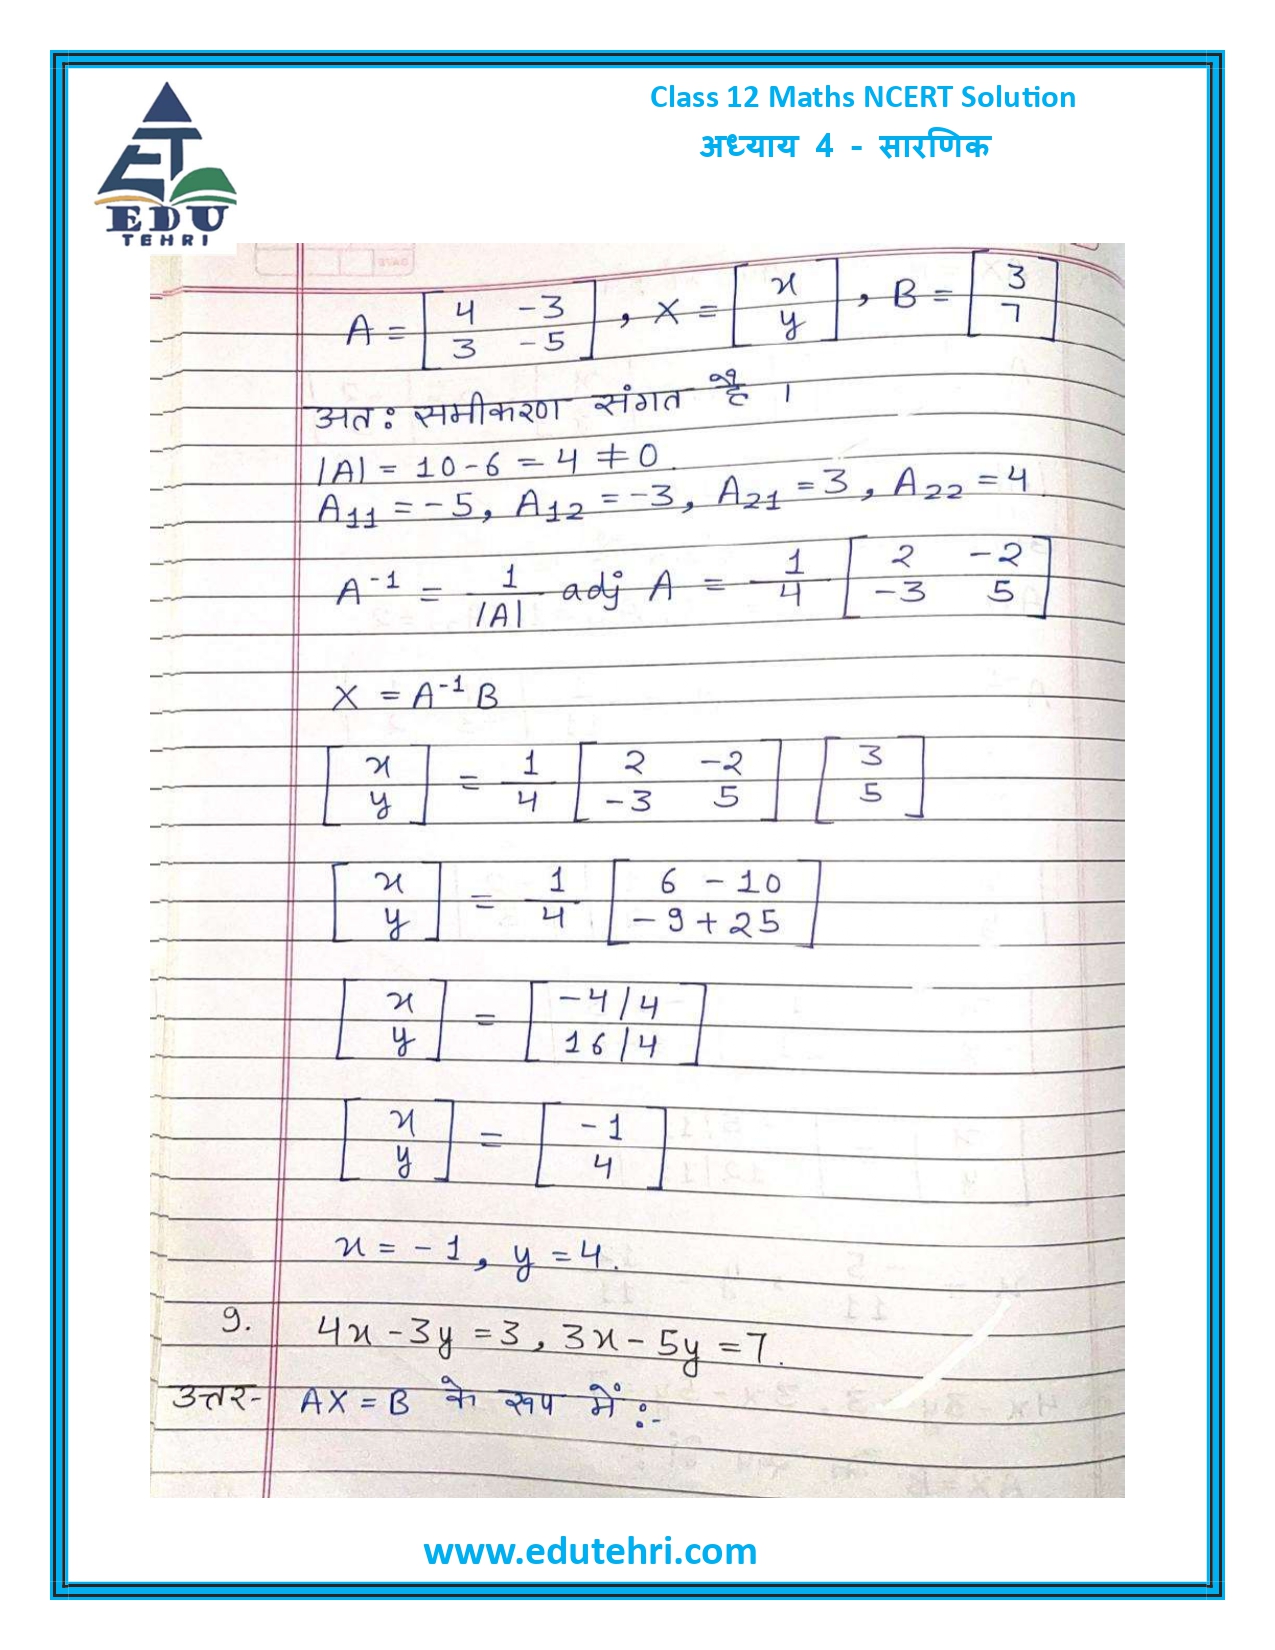 Class 12 Maths NCERT Solution
अध्याय 4 - सारणिक
EDU
TEHRI
A = [4 -3
3 -5] , X = [x
y] , B = [3
7]
अतः समीकरण संगत है ।
|A| = 10 - 6 = 4 ≠ 0.
A11 = -5, A12 = -3, A21 = 3, A22 = 4
A^-1 = 1/|A| adj A = 1/4 [2 -2
-3 5]
X = A^-1 B
[x
y] = 1/4 [2 -2
-3 5] [3
5]
[x
y] = 1/4 [6 - 10
-9 + 25]
[x
y] = [-4/4
16/4]
[x
y] = [-1
4]
x = -1, y = 4.
9. 4x - 3y = 3, 3x - 5y = 7.
उत्तर- AX = B के रूप में :-
www.edutehri.com